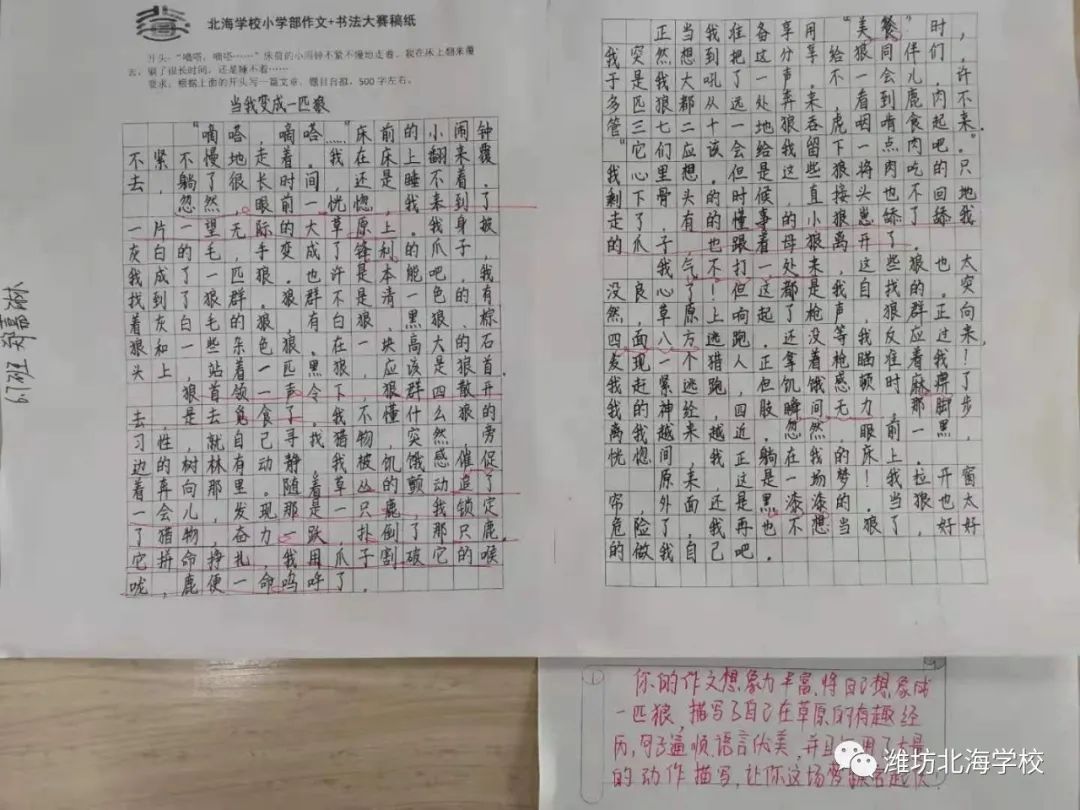 北海学校小学部作文+书法大赛稿纸
开头:“嘀嗒,嘀嗒……”床前的小闹钟不紧不慢地走着。我在床上翻来覆
去,躺了很长时间,还是睡不着……
要求:根据上面的开头写一篇文章,题目自拟,500字左右。
当我变成一匹狼
“嘀嗒,嘀嗒……”床前的小闹钟
不紧不慢地走着。我在床上翻来覆
去,躺了很长时间,还是睡不着。
忽然,眼前一恍惚,我来到了
一片一望无际的大草原上。我身披
灰白的毛,手变成了锋利的爪子,
我成了一匹狼。也许是本能吧,我
找到了狼群。狼群不是清一色的,有
着灰白毛的狼,有白狼、黑狼、棕
狼和一些杂色狼。在一块高大的石
头上,站着一匹黑狼,应该是狼首。
狼首领一声令下,狼群四散开
去,是去觅食了。我不懂什么狼的
习性,就自己寻找猎物,突然,旁
边的树林有动静,我被饥饿感催促
着奔向那里。随着草丛的颤动追了
一会儿,发现那是一只鹿,我锁定
了猎物,奋力一跃,扑倒了那只鹿。
它拼命挣扎,我用爪子割破它的喉
咙,鹿便一命呜呼了。
6.7班
正当我准备享用“美餐”时,
我突然想到把这分享给狼同伴们,
于是我大吼了一声,不一会儿,许
多匹狼都从远处奔来,看到鹿肉不
管三七二十一地狼吞虎咽啃食起来。
“它们应该会给我留下一点肉吧。”
我心里想。但是这些狼将肉吃的只
剩下骨头的时候,直接头也不回地
走了,有的懂事的小狼崽舔了舔我
的爪子,也跟着母狼离开了。
我气不打一处来,这些狼也太
没良心了!但这都是我自找的。突
然,草原上响起了枪声,狼群正向
四面八方逃跑。还没等我反应过来,
发现一个猎人正拿着枪瞄准着我!
我赶紧逃跑,但饥饿感顿时麻痹了
我的神经,四肢瞬间无力,那脚步
离我越来越近。忽然,眼前一黑,
恍惚间,我正躺在我的床上。
原来,这是一场梦!我拉开窗
帘,外面还是黑漆漆的。当狼也太
危险了,我再也不想当狼了,好好
的做我自己吧。
你的作文想象力丰富,将自己想象成
一匹狼,描写了自己在草原的有趣经
历,句子通顺,语言优美,并且用了大量
的动作描写,让你这场梦
潍坊北海学校